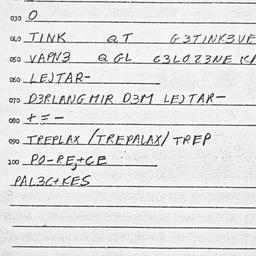 030 O
040 TINK QT G3TINK3VE
050 VAPN3 Q GL C3LOZ3NE
060 LE)TAR-
070 D3RLANGMIR D3M LE)TAR-
080 +=-
090 TREPLAX /TREPALAX/ TREP
100 PO-RE,+CE
PAL3C+KES